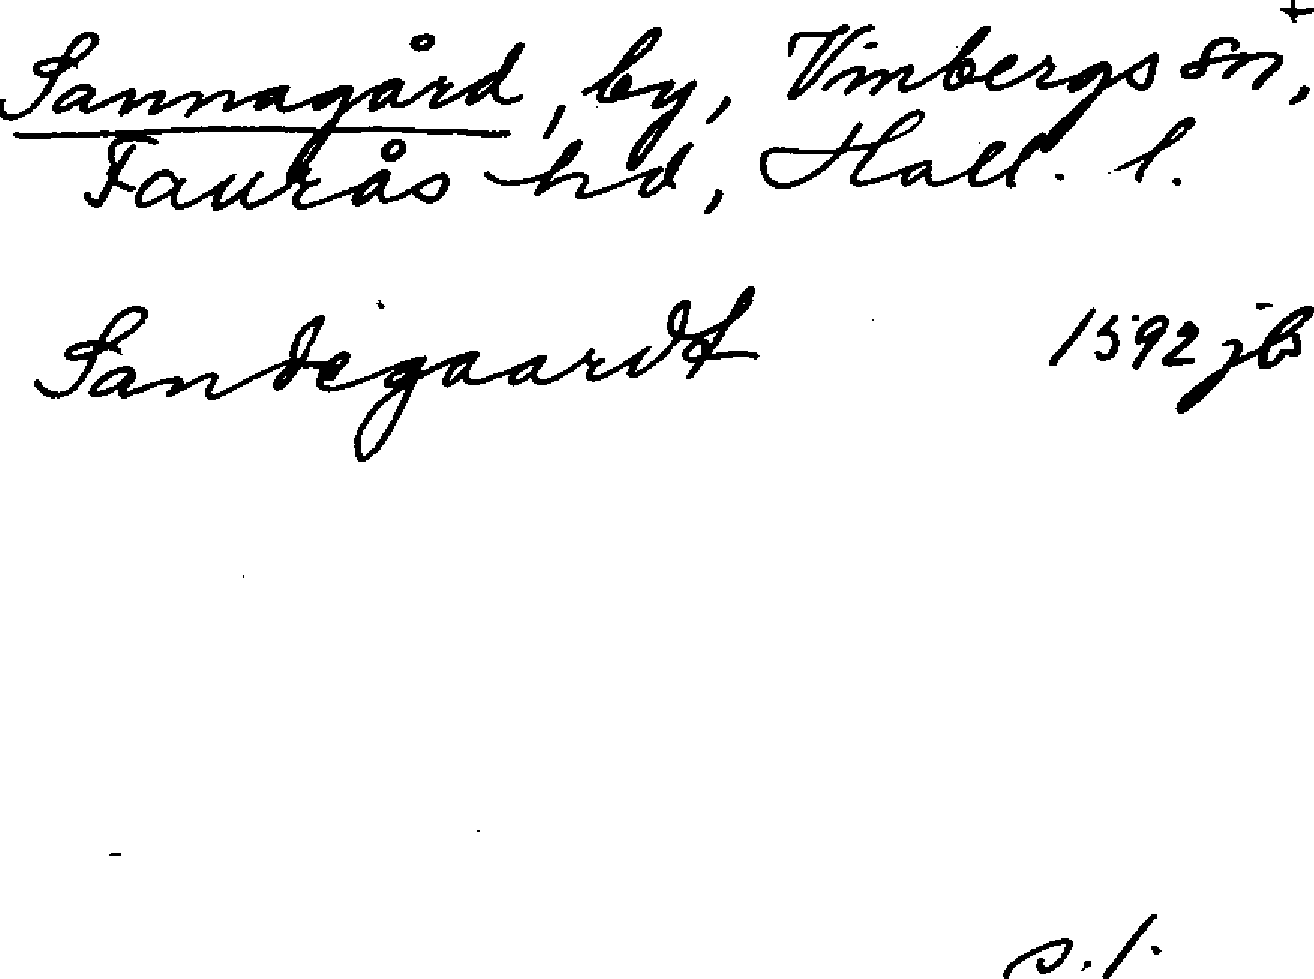 Sannagård, by, Vinbergs sn,
Faurås hd, Hall. l.
Sandegaardt 1592 jb